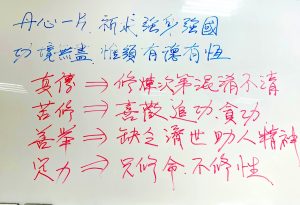 丹心一片,祈求強身強國
功境無盡 惟須有讓有恆
真傳 ⇒ 修煉次第混淆不清
苦修 ⇒ 喜歡追功、貪功
善舉 ⇒ 缺乏濟世助人精神
足力 ⇒ 只修命、不修性